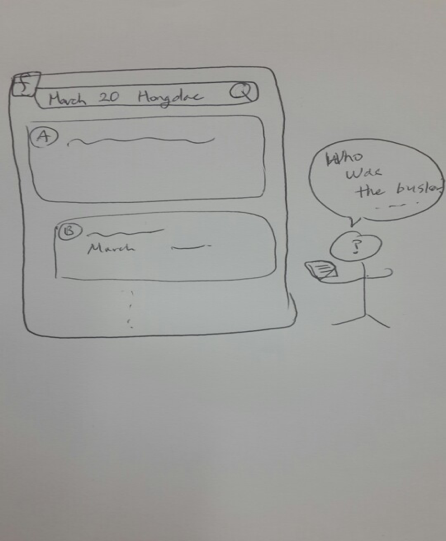 March 20 Hongdae
A
B
March
Who
was
the busker
....
?